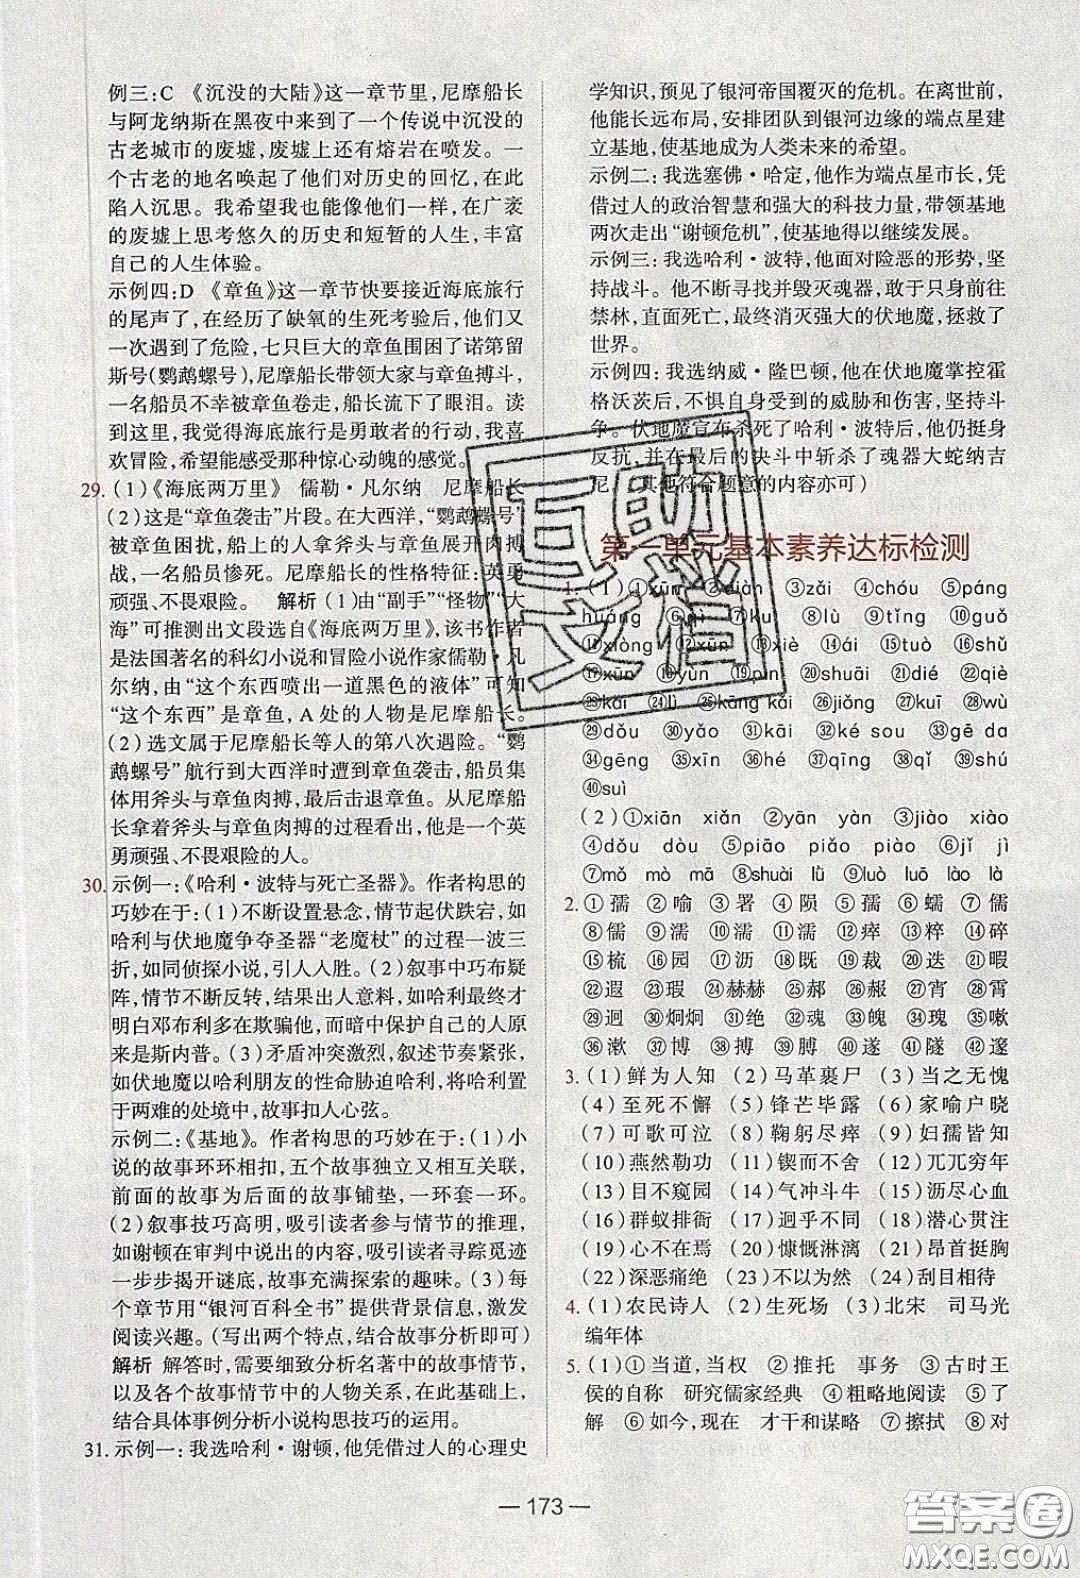 例三:C 《沉没的大陆》这一章节里,尼摩船长
与阿龙纳斯在黑夜中来到了一个传说中沉没的
古老城市的废墟,废墟上还有熔岩在喷发。一
个古老的地名唤起了他们对历史的回忆,在此
陷入沉思。我希望我也能像他们一样,在广袤
的废墟上思考悠久的历史和短暂的人生,丰富
自己的人生体验。
示例四:D 《章鱼》这一章节快要接近海底旅行
的尾声了,在经历了缺氧的生死考验后,他们又
又一次遇到了危险,七只巨大的章鱼围困了诺第留
斯号(鹦鹉螺号),尼摩船长带领大家与章鱼搏斗,
一名船员不幸被章鱼卷走,船长流下了眼泪。读
到这里,我觉得海底旅行是勇敢者的行动,我喜
欢冒险,希望能感受那种惊心动魄的感觉。
29. (1)《海底两万里》 儒勒·凡尔纳 尼摩船长
(2)这是“章鱼袭击”片段。在大西洋,“鹦鹉螺号”
被章鱼困扰,船上的人拿斧头与章鱼展开肉搏
战,一名船员惨死。尼摩船长的性格特征:英勇
顽强、不畏艰险。 解析 (1)由“副手”“怪物”“大
海”可推测出文段选自《海底两万里》,该书作者
是法国著名的科幻小说和冒险小说作家儒勒·凡
尔纳,由“这个东西喷出一道黑色的液体”可知
“这个东西”是章鱼,A处的人物是尼摩船长。
(2)选文属于尼摩船长等人的第八次遇险。“鹦
鹉螺号”航行到大西洋时遭到章鱼袭击,船员集
体用斧头与章鱼肉搏,最后击退章鱼。从尼摩船
长拿着斧头与章鱼肉搏的过程看出,他是一个英
勇顽强、不畏艰险的人。
30. 示例一:《哈利·波特与死亡圣器》。作者构思的
巧妙在于:(1)不断设置悬念,情节起伏跌宕,如
哈利与伏地魔争夺圣器“老魔杖”的过程一波三
折,如同侦探小说,引人入胜。(2)叙事中巧布疑
阵,情节不断反转,结果出人意料,如哈利最终才
明白邓布利多在欺骗他,而暗中保护自己的人原
来是斯内普。(3)矛盾冲突激烈,叙述节奏紧张,
如伏地魔以哈利朋友的性命胁迫哈利,将哈利置
于两难的处境中,故事扣人心弦。
示例二:《基地》。作者构思的巧妙在于:(1)小
说的故事环环相扣,五个故事独立又相互关联,
前面的故事为后面的故事铺垫,一环套一环。
(2)叙事技巧高明,吸引读者参与情节的推理,
如谢顿在审判中说出的内容,吸引读者寻踪觅迹
一步步揭开谜底,故事充满探索的趣味。(3)每
个章节用“银河百科全书”提供背景信息,激发
阅读兴趣。(写出两个特点,结合故事分析即可)
解析 解答时,需要细致分析名著中的故事情节,
以及各个故事情节中的人物关系,在此基础上,
结合具体事例分析小说构思技巧的运用。
31. 示例一:我选哈利·谢顿,他凭借过人的心理史
学知识,预见了银河帝国覆灭的危机。在离世前,
他能长远布局,安排团队到银河边缘的端点星建
立基地,使基地成为人类未来的希望。
示例二:我选塞佛·哈定,他作为端点星市长,凭
借过人的政治智慧和强大的科技力量,带领基地
两次走出“谢顿危机”,使基地得以继续发展。
示例三:我选哈利·波特,他面对险恶的形势,坚
持战斗。他不断寻找并毁灭魂器,敢于只身前往
禁林,直面死亡,最终消灭强大的伏地魔,拯救了
世界。
示例四:我选纳威·隆巴顿,他在伏地魔掌控霍
格沃茨后,不惧自身受到的威胁和伤害,坚持斗
争。伏地魔宣布杀死了哈利·波特后,他仍挺身
反抗,并在最后的决斗中斩杀了魂器大蛇纳吉
尼。(其他符合题意的内容亦可)
第一单元基本素养达标检测
1. (1)①xūn ②diàn ③zǎi ④chóu ⑤páng
huáng ⑥qì ⑦kū ⑧lù ⑨tǐng ⑩guǒ
⑪xiōng ⑫xūn ⑬xiè ⑭ái ⑮tuò ⑯shǔ
⑰xūn ⑱yǔn ⑲pín ⑳shuāi ㉑dié ㉒qiè
㉓kǎi ㉔lǐ ㉕kāng kǎi ㉖jiǒng ㉗kuī ㉘wù
㉙dǒu ㉚yǎo ㉛zǎn ㉜ké sou ㉝gē da
㉞gēng ㉟xīn ㊱hé ㊲qīng ㊳yí ㊴shèn
㊵suì
(2)①xiān xiǎn ②yān yàn ③jiào jiào
④dǒu dòu ⑤piāo piáo piào ⑥jǐ jì
⑦mǒ mò mā ⑧shuài lǜ ⑨luō lāo là
2. ①孺 ②喻 ③署 ④陨 ⑤孺 ⑥蠕 ⑦儒
⑧儒 ⑨濡 ⑩濡 ⑪濡 ⑫瘁 ⑬粹 ⑭碎
⑮梳 ⑯园 ⑰沥 ⑱既 ⑲裁 ⑳迭 ㉑暇
㉒遐 ㉓瑕 ㉔赫赫 ㉕郝 ㉖赧 ㉗宵 ㉘霄
㉙迥 ㉚炯炯 ㉛绝 ㉜魂 ㉝魄 ㉞瑰 ㉟嗽
㊱漱 ㊲博 ㊳搏 ㊴膊 ㊵遂 ㊶隧 ㊷邃
3. (1)鲜为人知 (2)马革裹尸 (3)当之无愧
(4)至死不懈 (5)锋芒毕露 (6)家喻户晓
(7)可歌可泣 (8)鞠躬尽瘁 (9)妇孺皆知
(10)燕然勒功 (11)锲而不舍 (12)兀兀穷年
(13)目不窥园 (14)气冲斗牛 (15)沥尽心血
(16)群蚁排衙 (17)迥乎不同 (18)潜心贯注
(19)心不在焉 (20)慷慨淋漓 (21)昂首挺胸
(22)深恶痛绝 (23)不以为然 (24)刮目相待
4. (1)农民诗人 (2)生死场 (3)北宋 司马光
编年体
5. (1)①当道,当权 ②推托 事务 ③古时王
侯的自称 研究儒家经典 ④粗略地阅读 ⑤了
解 ⑥如今,现在 才干和谋略 ⑦擦拭 ⑧对
— 173 —
互助
文档
答案圈
MXQE.COM